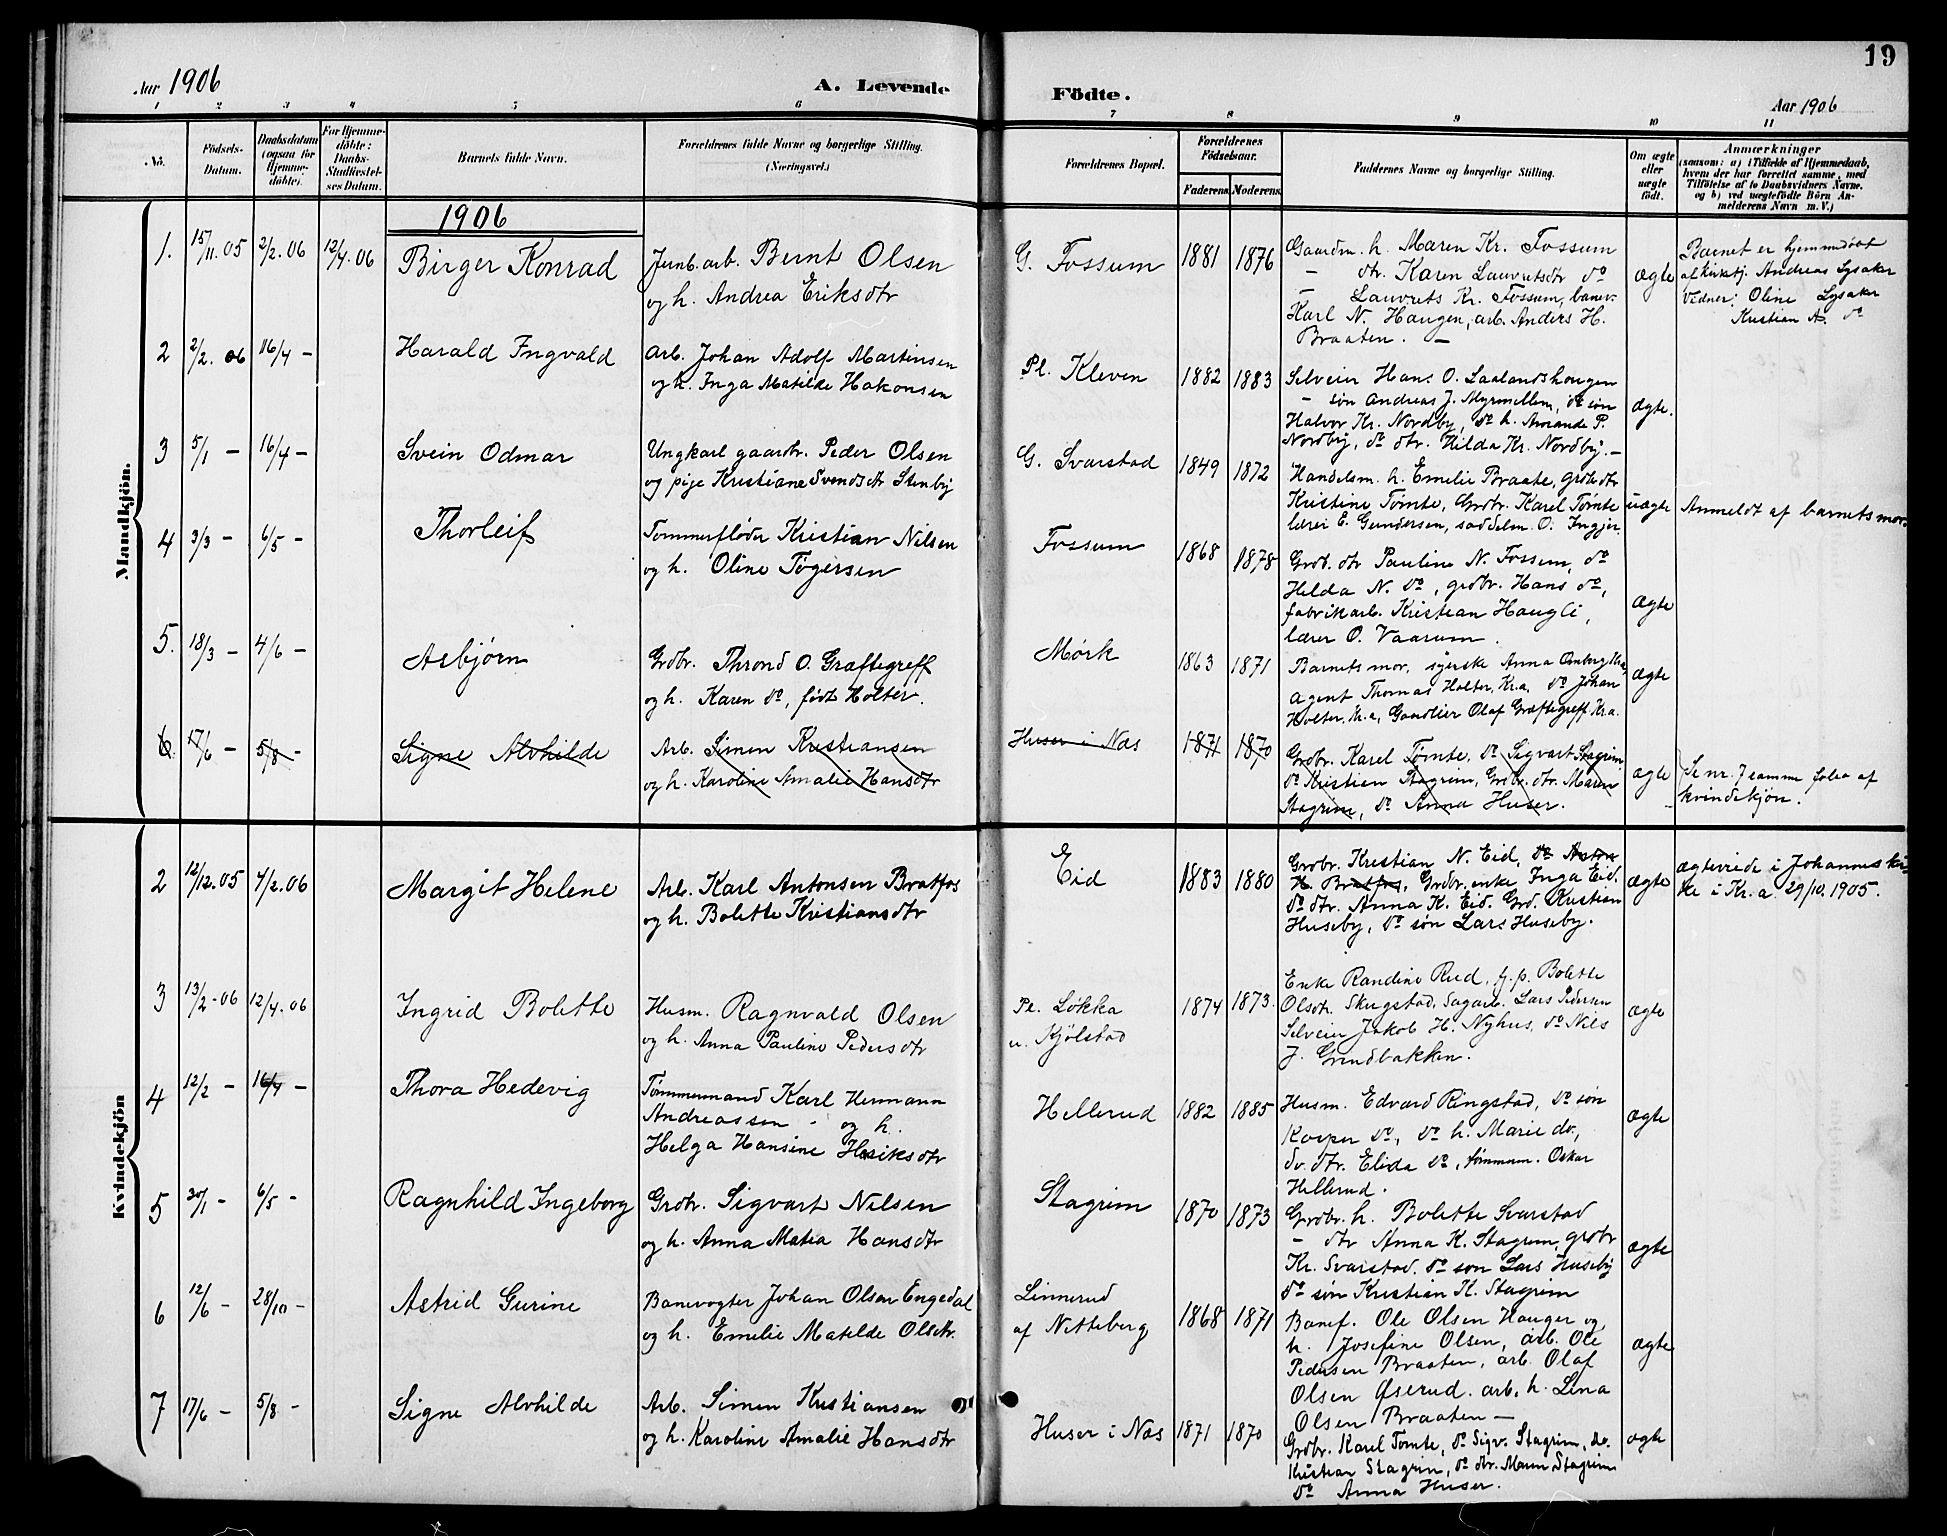 19
Aar 1906
A. Levende
Födte.
Aar 1906
1 2 3 4 5 6 7 8 9 10 11
No.
Födsels-
Datum.
Daabsdatum
(ogsaa for
Hjemme-
döbte).
For Hjemme-
döbte:
Daabs-
Stadfæstel-
ses Datum.
Barnets fulde Navn.
Forældrenes fulde Navne og borgerlige Stilling.
(Næringsvei.)
Forældrenes Bopæl.
Forældrenes
Födselsaar.
Faderens. Moderens.
Faddernes Navne og borgerlige Stilling.
Om ægte
eller
uægte
födt.
Anmærkninger
(saasom: a) i Tilfælde af Hjemmedaab,
hvem der har forrettet samme, med
Tilföielse af to Daabsvidners Navne,
og b) ved uægtefödte Börn An-
melderens Navn m. V.)
Mandkjön.
1906
1. 15/11.05 2/2.06 12/4.06 Birger Konrad
Jernb.arb. Bernt Olsen
og h. Andrea Eriksdtr
G. Fossum 1881 1876
Gaardm. h. Maren Kr. Fossum
– dtr. Karen Lauritsdtr do
– Lauritz Kr. Fossum, banev.
Karl N. Haugen, arb. Anders H.
Braaten. –
ægte
Barnet er hjemmedøbt
af kirketj. Andreas Lysaker
Vidner: Oline Lysaker
Kristian A. do
2 2/2.06 16/4 – Harald Ingvald
Arb. Johan Adolf Martinsen
og h. Inga Matilde Hakonsen
Pl. Kleven 1882 1883
Selveier Hans O. Laalandshaugen
– søn Andreas J. Myrmellem, do søn
Halvor Kr. Nordby, do h. Amande P.
Nordby, do dtr. Hilda Kr. Nordby. –
ægte.
3 5/1 – 16/4 – Svein Odmar
Ungkarl gaardbr. Peder Olsen
og pige Kristiane Svendsdtr Stenby
G. Svarstad 1849 1872
Handelsm. h. Emelie Braate, grdb. dtr
Kristine Tømte, Grdbr. Karel Tømte
lærer E. Gundersen, saddelm. O. Ingjer
uægte
Anmeldt af barnets mor.
4 3/3 – 6/5 – Thorleif
Tømmerfløder Kristian Nilsen
og h. Oline Tøgersen
Fossum 1868 1878
Grdb. dtr Pauline N. Fossum, do
Helda N. do, grdbr. Hans do,
fabrikarb. Kristian Haugli,
lærer O. Vaarum.
ægte
5. 18/3 – 4/6 – Asbjørn
Grdbr. Thrond O. Græftegreff
og h. Karen do, født Holter.
Mørk 1863 1871
Barnets mor, syerske Anna Ornberg Kr.a,
Agent Thomas Holter, Kr.a, do Johan
Holter, Kr.a, Gaardeier Olaf Græftegreff Kr.a.
ægte
6. 17/6 – 5/8 – Signe Alvhilde
Arb. Simen Kristiansen
og h. Karoline Amalie Hansdtr
Huser i Næs 1871 1870
Grdbr. Karel Tømte, do Sigvart Stagrim
do Kristian Stagrim, Grdbr. dtr. Maren
Stagrim, do Anna Huser.
ægte
Se nr. 7 samme folio af
kvindekjøn.
Kvindekjön
2 12/12.05 4/2.06 Margit Helene
Arb. Karl Antonsen Bratfos
og h. Bolette Kristiansdtr
Eid 1883 1880
Grdbr. Kristian N. Eid, do Anton
K. Bratfos, Grdbr. enke Inga Eid.
do dtr. Anna K. Eid. Grd. Kristian
Huseby, do søn Lars Huseby.
ægte
ægteviede i Johannes kir-
ke i Kr.a. 29/10.1905.
3 13/2-06 12/4.06 Ingrid Bolette
Husm. Ragnvald Olsen
og h. Anna Pauline Pedersdtr
Pl. Løkka
u. Kjølstad
1874 1873.
Enke Randine Rud, f.p. Bolette
Olsdtr. Skugstad, Sagarb. Lars Pedersen
Selveier Jakob H. Nyhus, do Nils
J. Grindbakken.
ægte
4 12/2 – 16/4 – Thora Hedevig
Tømmermand Karl Hermann
Andreassen – og h.
Helga Hansine Heriksdtr
Hellerud 1882 1885
Husm. Edvard Ringstad, do søn
Kasper do, do h. Marie do,
do. dtr. Elida do, tømmerm. Oskar
Hellerud.
ægte
5 30/1 – 6/5 – Ragnhild Ingeborg
Grdbr. Sigvart Nilsen
og h. Anna Matea Hansdtr
Stagrim 1870 1873
Grdbr. h. Bolette Svarstad
– dtr Anna K. Stagrim, grdbr
Kr. Svarstad, do søn Lars Huseby
do søn Kristian K. Stagrim
ægte
6 12/6 – 28/10 – Astrid Gurine
Banevogter Johan Olsen Engedal
og h. Emelie Matilde Olsdtr.
Linnerud
af Nitteberg
1868 1871
Banef. Ole Olsen Hauger og
h. Josefine Olsen, arb. Ole
Pedersen Braaten, arb. Olaf
Olsen Øserud. arb. h. Lina
Olsen Braaten –
ægte
7 17/6 – 5/8 – Signe Alvhilde
Arb. Simen Kristiansen
og h. Karoline Amalie Hansdtr
Huser i Næs 1871 1870
Grdbr. Karel Tømte, do Sigv. Stagrim, do.
Kristian Stagrim, do dtr. Maren Stagrim
do Anna Huser.
ægte